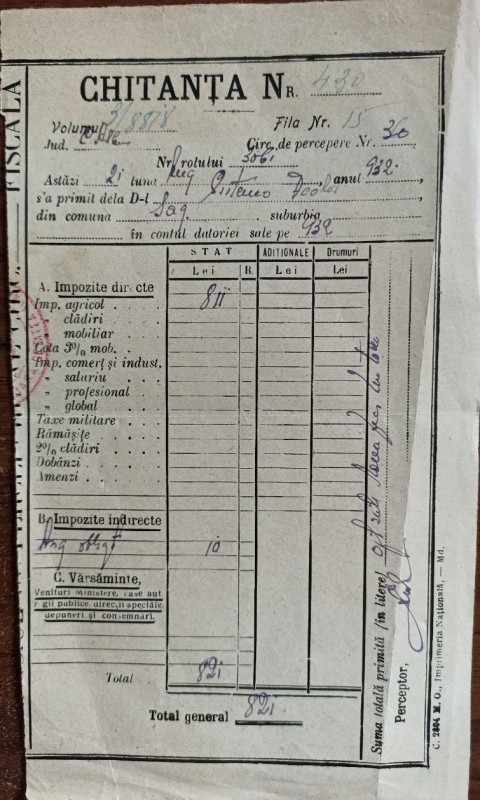 CHITANȚA NR. 430
Volumul 3/8818 Fila Nr. 15
Jud. Circ. de percepere Nr. 30
Nr. rotului 3061
Astăzi 21 luna Aug anul 932.
s'a primit dela D-l
din comuna Șag suburbia
în contul datoriei sale pe 932
STAT ADIȚIONALE Drumuri
Lei B. Lei Lei
A. Impozite directe
Imp. agricol 811
„ clădiri
„ mobiliar
Cota 3% mob.
Imp. comerț și indust.
„ salariu
„ profesional
„ global
Taxe militare
Rămășițe
2% clădiri
Dobânzi
Amenzi
B. Impozite indirecte
10
C. Vărsăminte,
Venituri Ministere, case aut.
regii publice, direcții speciale,
depuneri și consemnări.
Total 821
Total general 821
Suma totală primită (în litere) opt sute
Perceptor,
C. 2804 M. O., Imprimeria Națională, — Md.
FISCALA